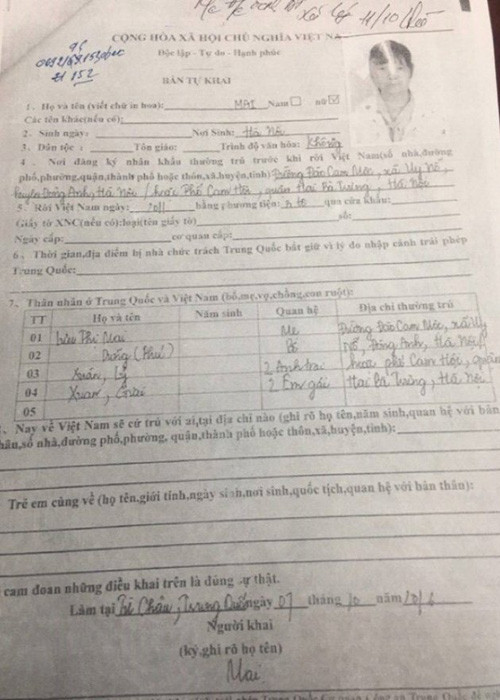 11/10
CỘNG HÒA XÃ HỘI CHỦ NGHĨA VIỆT NA
Độc lập - Tự do - Hạnh phúc
21 152
BẢN TỰ KHAI
1. Họ và tên (viết chữ in hoa): MAI Nam nữ
Các tên khác(nếu có):
2. Sinh ngày: Nơi Sinh: Hà Nội
3. Dân tộc : Tôn giáo: Trình độ văn hóa: Không
4 . Nơi đăng ký nhân khẩu thường trú trước khi rời Việt Nam(số nhà,đường
phố,phường,quận,thành phố hoặc thôn,xã,huyện,tỉnh) Đường Đào Cam Mộc, xã Uy Nỗ,
huyện Đông Anh, Hà Nội / hoặc Phố Cam Hội, quận Hai Bà Trưng, Hà Nội
5. Rời Việt Nam ngày: 2011 bằng phương tiện: ô tô qua cửa khẩu:
Giấy tờ XNC(nếu có):loại(tên giấy tờ) số:
Ngày cấp: cơ quan cấp:
6. Thời gian,địa điểm bị nhà chức trách Trung Quốc bắt giữ vì lý do nhập cảnh trái phép
Trung Quốc:
7. Thân nhân ở Trung Quốc và Việt Nam (bố,mẹ,vợ,chồng,con ruột):
TT Họ và tên Năm sinh Quan hệ Địa chỉ thường trú
01 Thị Mai Mẹ Đường Đào Cam Mộc, xã Uy
02 Dũng (Phú) Bố Nỗ, Đông Anh, Hà Nội
03 Xuân, Lý 2 Anh trai hoặc phố Cam Hội, quận
04 Xuan, 2 Em gái Hai Bà Trưng, Hà Nội
05
. Nay về Việt Nam sẽ cư trú với ai,tại địa chỉ nào (ghi rõ họ tên,năm sinh,quan hệ với bản
hân,số nhà,đường phố,phường, quận,thành phố hoặc thôn,xã,huyện,tỉnh):
Trẻ em cùng về (họ tên,giới tính,ngày sinh,nơi sinh,quốc tịch,quan hệ với bản thân):
cam đoan những điều khai trên là đúng sự thật.
Làm tại Châu, Trung Quốc ngày 07 tháng 10 năm 2016
Người khai
(ký,ghi rõ họ tên)
Mai